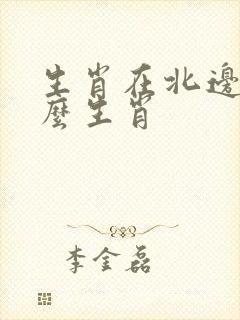 生肖在北邊
麽生肖
李金磊